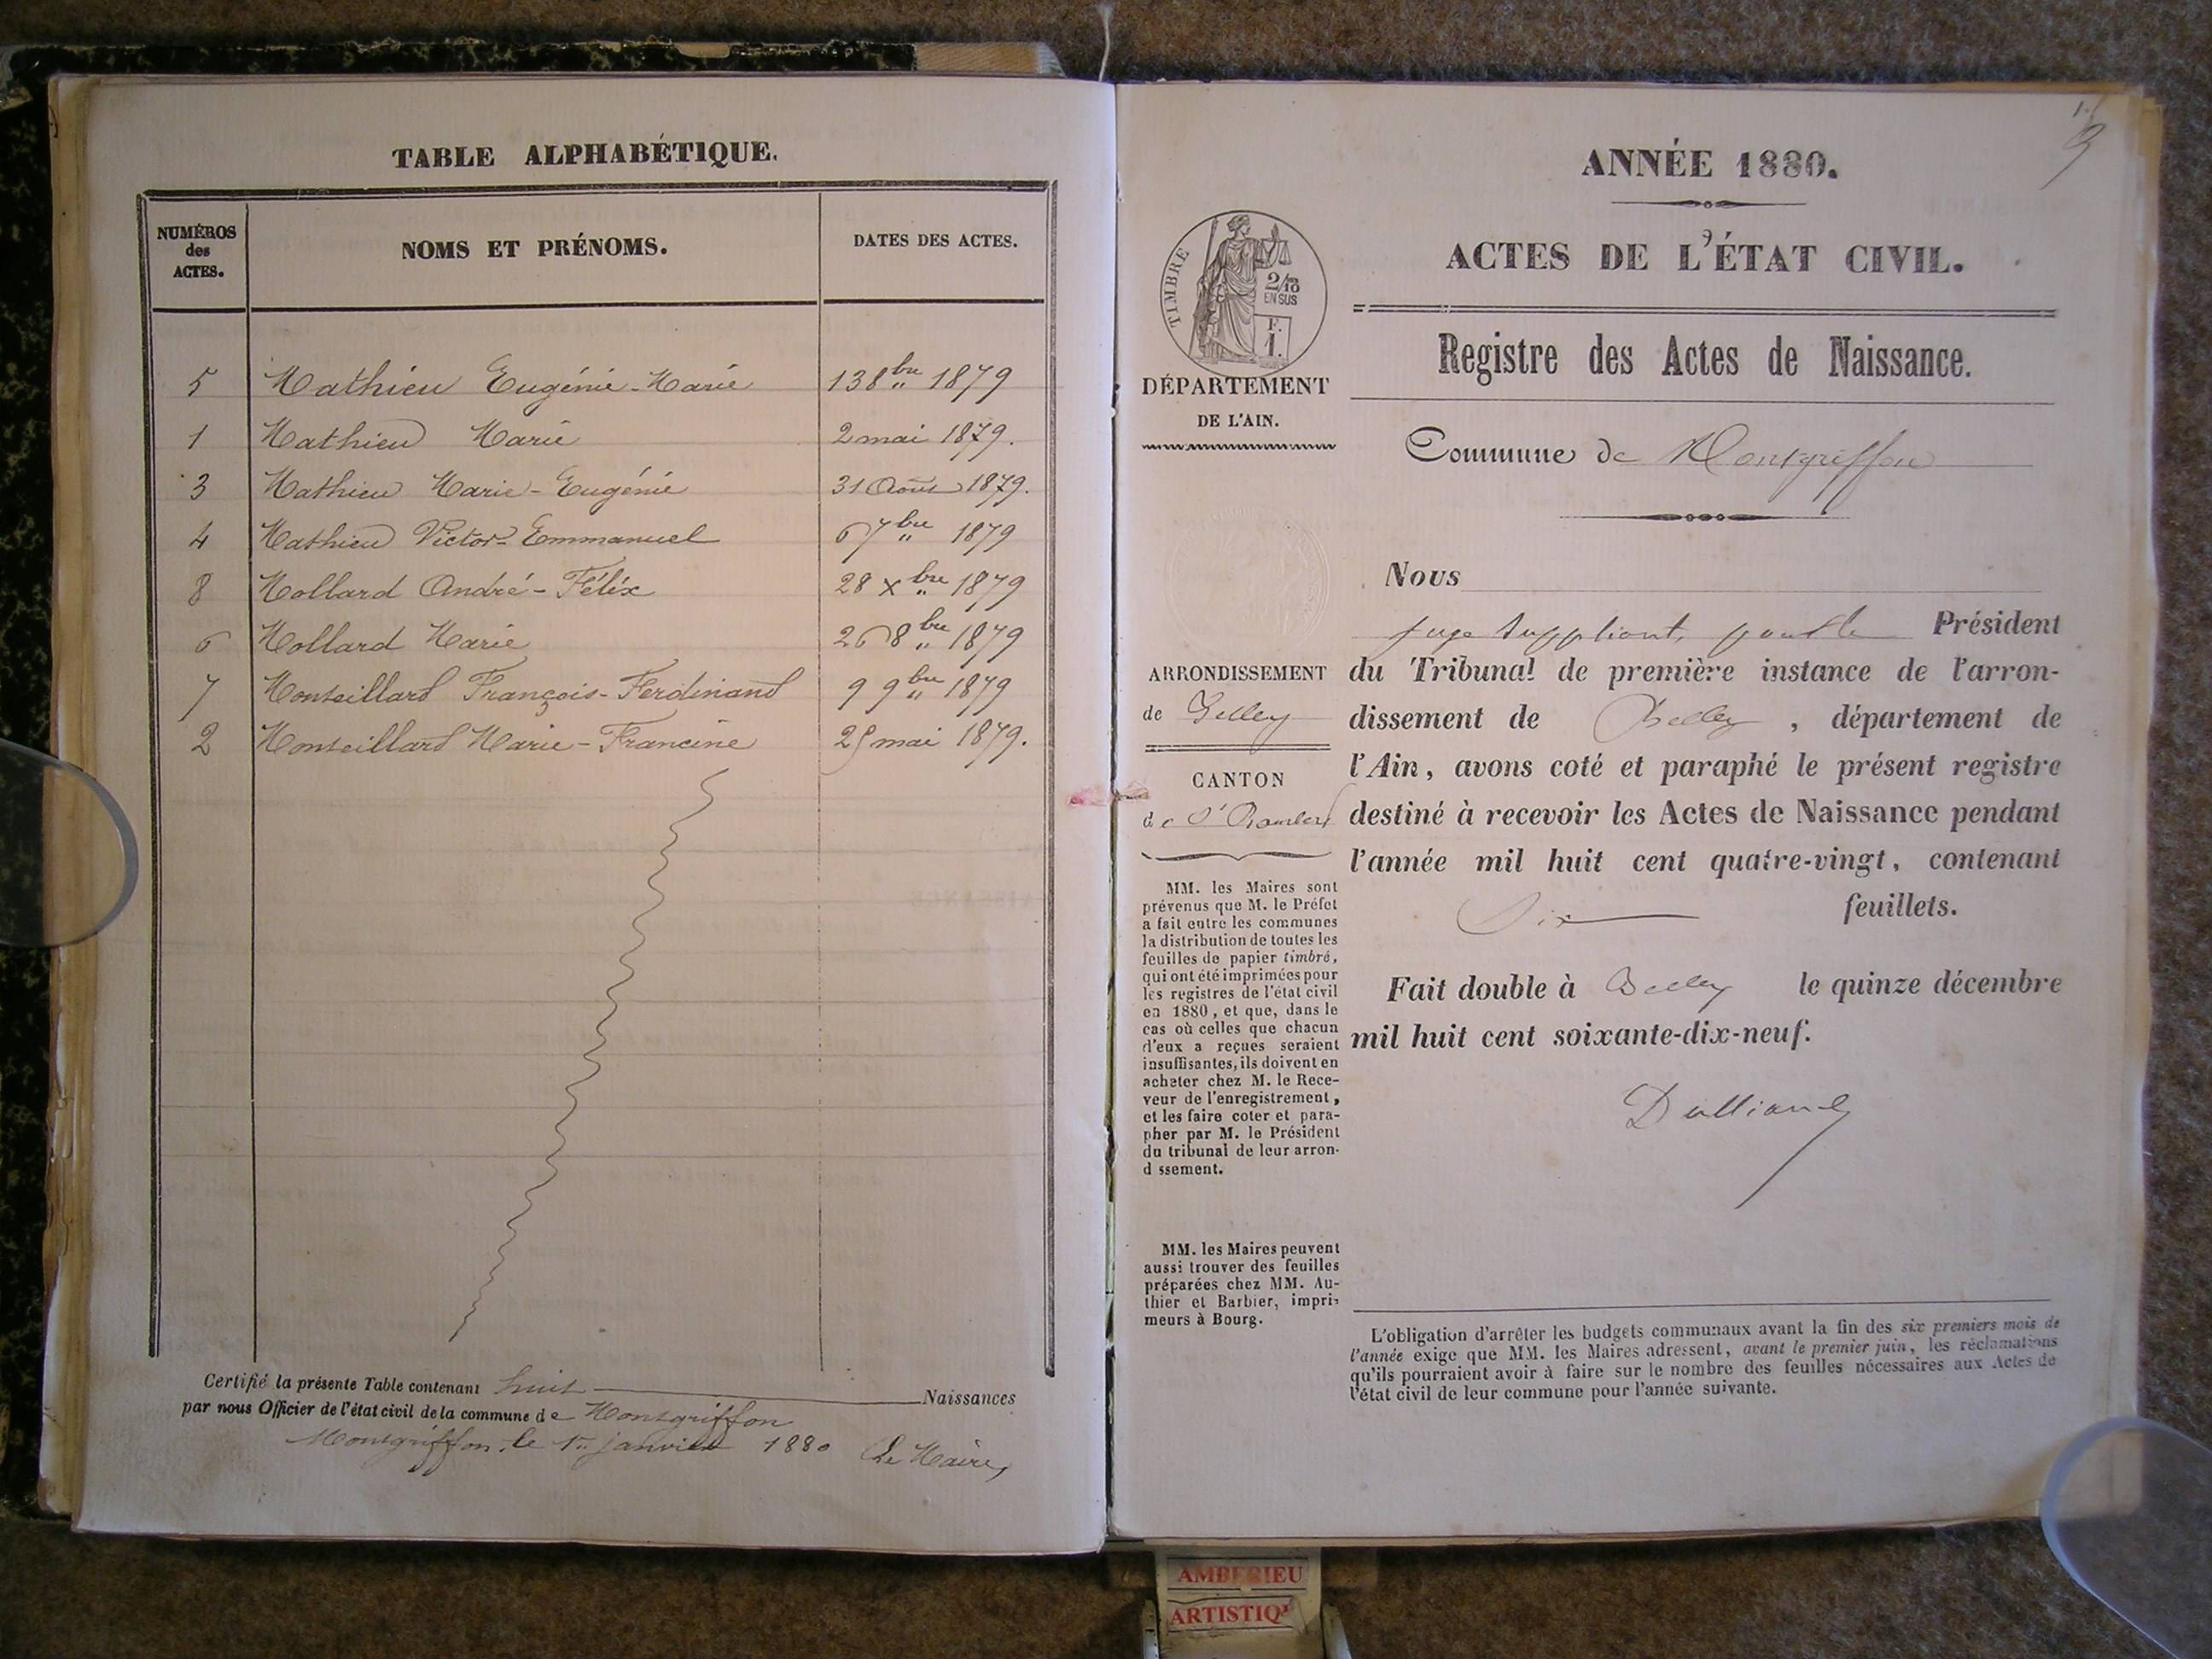 TABLE ALPHABÉTIQUE.
NUMÉROS des ACTES. NOMS ET PRÉNOMS. DATES DES ACTES.
5 Mathieu Eugénie-Marie 13 8bre 1879
1 Mathieu Marie 2 mai 1879.
3 Mathieu Marie-Eugénie 31 Août 1879.
4 Mathieu Victor-Emmanuel 6 7bre 1879
8 Mollard André-Félix 28 Xbre 1879
6 Mollard Marie 26 8bre 1879
7 Monteillard François-Ferdinand 9 9bre 1879
2 Monteillard Marie-Francine mai 1879.
Certifié la présente Table contenant huit Naissances
par nous Officier de l'état civil de la commune de Montgriffon
Montgriffon, le 1er janvier 1880 Le Maire,
1.
ANNÉE 1880.
ACTES DE L'ÉTAT CIVIL.
Registre des Actes de Naissance.
Commune de Montgriffon
TIMBRE
2/10 EN SUS
F. 1.
DÉPARTEMENT
DE L'AIN.
ARRONDISSEMENT
de Belley
CANTON
de St Rambert
MM. les Maires sont
prévenus que M. le Préfet
a fait entre les communes
la distribution de toutes les
feuilles de papier timbré,
qui ont été imprimées pour
les registres de l'état civil
en 1880, et que, dans le
cas où celles que chacun
d'eux a reçues seraient
insuffisantes, ils doivent en
acheter chez M. le Rece-
veur de l'enregistrement,
et les faire coter et para-
pher par M. le Président
du tribunal de leur arron-
d ssement.
MM. les Maires peuvent
aussi trouver des feuilles
préparées chez MM. Au-
thier et Barbier, impri-
meurs à Bourg.
Nous
juge suppléant, pour le Président
du Tribunal de première instance de l'arron-
dissement de Belley, département de
l'Ain, avons coté et paraphé le présent registre
destiné à recevoir les Actes de Naissance pendant
l'année mil huit cent quatre-vingt, contenant
Six feuillets.
Fait double à Belley le quinze décembre
mil huit cent soixante-dix-neuf.
L'obligation d'arrêter les budgets communaux avant la fin des six premiers mois de
l'année exige que MM. les Maires adressent, avant le premier juin, les réclamations
qu'ils pourraient avoir à faire sur le nombre des feuilles nécessaires aux Actes de
l'état civil de leur commune pour l'année suivante.
AMBERIEU
ARTISTIQ